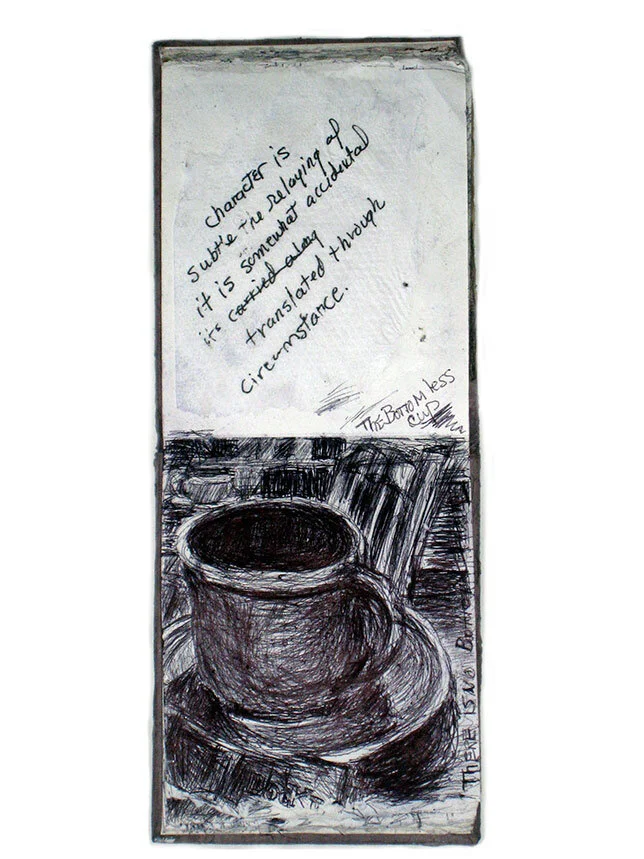 Character is
subtle the relaying of
it is somewhat accidental
its carried along
translated through
circumstance.
The Bottomless
Cup
There is no Bottom